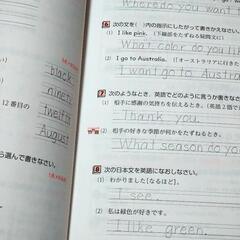 Where do you want
6 次の文を( )内の指示にしたがって書きかえなさい。
(1) I like pink. (下線部をたずねる疑問文に)
What color do you like
(2) I go to Australia. (「オーストラリアに行き
I want go to Austral
7 次のようなとき，英語でどのように言うか書きな
(1) 相手に感謝の気持ちを伝えるとき。(英語2語で
Thank you.
(2) 相手の好きな季節が何かをたずねるとき。
What season do you
8 次の日本文を英語になおしなさい。
(1) わかりました[なるほど]。
I see.
(2) 私は緑色が好きです。
I like green.
black
ninety
12番目の
twelfth
August
ら選んで書きなさい。